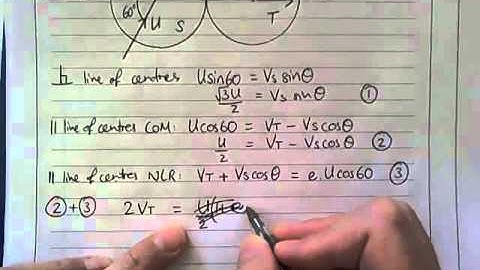 60° U S T
⊥ line of centres Usin60 = Vs sinθ
√3U/2 = Vs sinθ ①
|| line of centres COM: Ucos60 = VT - Vscosθ
U/2 = VT - Vscosθ ②
|| line of centres NLR: VT + Vscosθ = e.Ucos60 ③
②+③ 2VT =